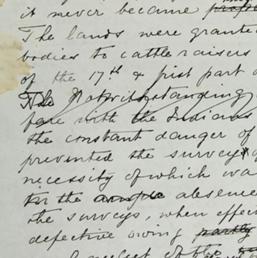 it never became
The lands were grante
bodies to cattle raisers
of the 17th & first part o
The Notwithstanding
with the Indians
the constant danger of
prevented the surveys
necessity of which wa
in the ample absence
the surveys, when effec
defective owing partly
neglect of the